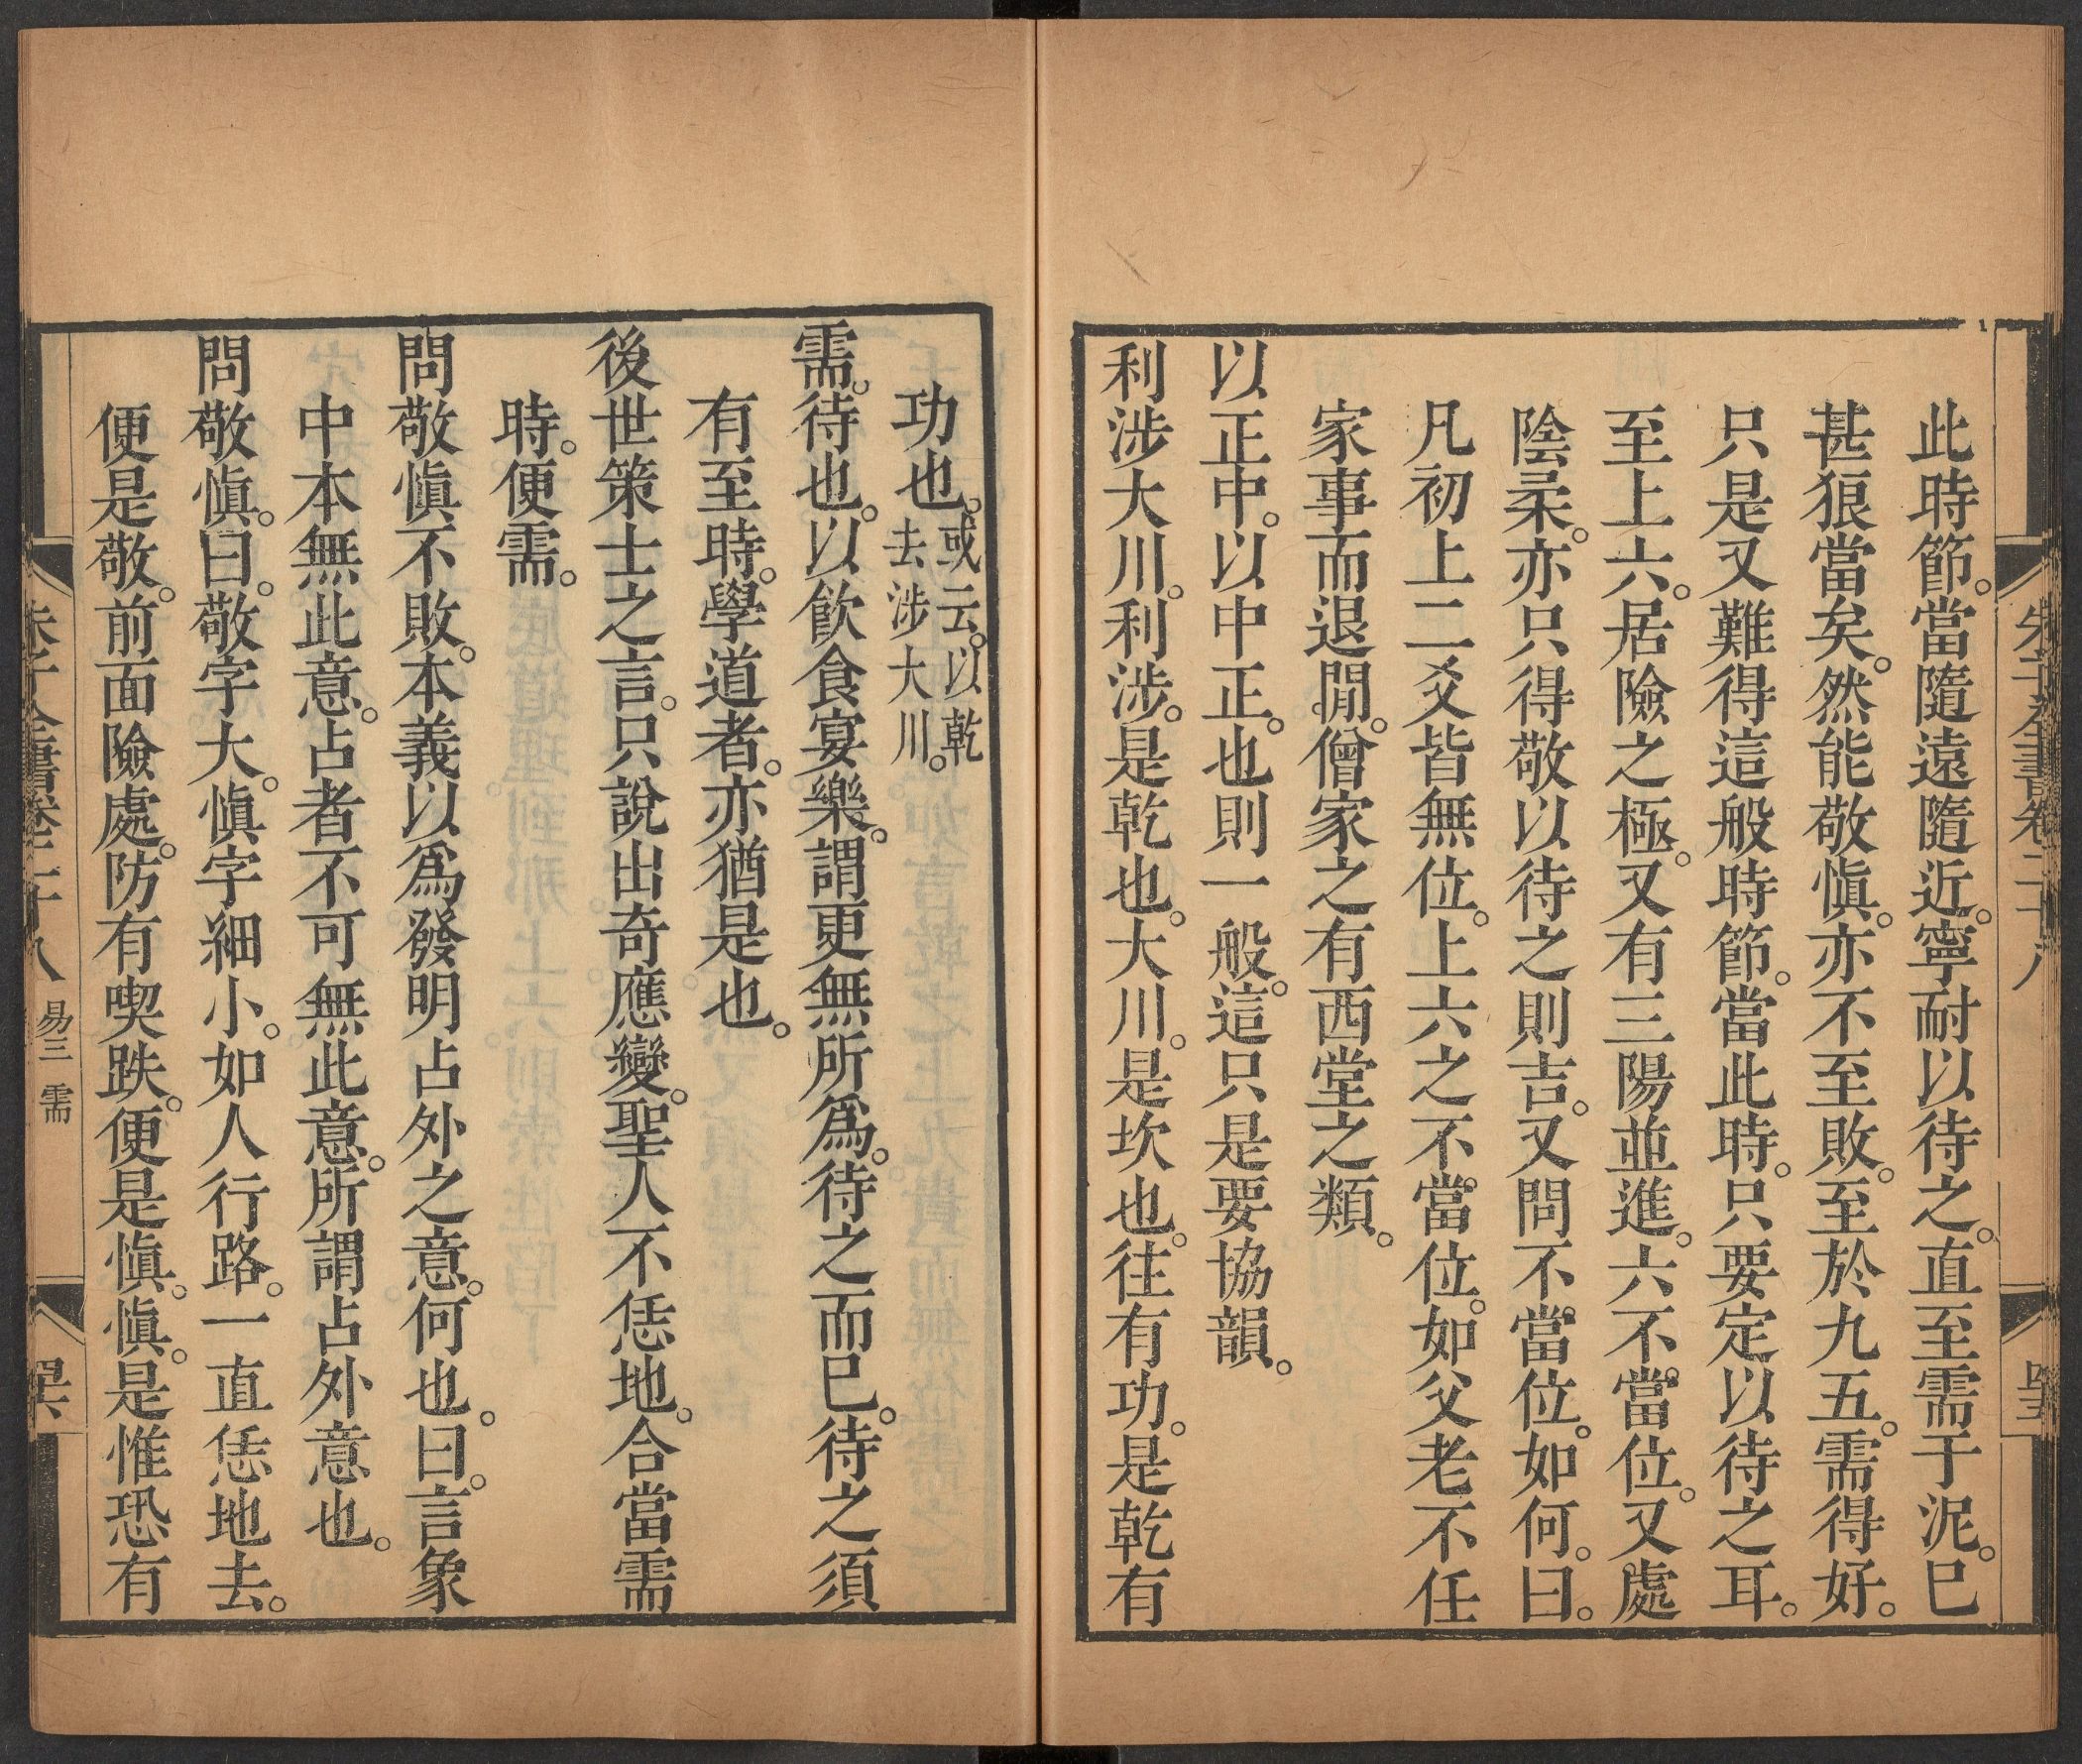 此時節。當隨遠隨近。寧耐以待之。直至需于泥。巳
甚狼當矣。然能敬愼。亦不至敗。至於九五。需得好。
只是又難得這般時節。當此時。只要定以待之耳。
至上六。居險之極。又有三陽並進。六不當位。又處
陰柔。亦只得敬以待之則吉。又問不當位。如何。曰。
凡初上二爻皆無位。上六之不當位。如父老不任
家事而退閒。僧家之有西堂之類。
以正中。以中正。也則一般。這只是要協韻。
利涉大川。利涉。是乾也。大川。是坎也。往有功。是乾有
朱子全書卷二十八
功也。或云。以乾
去涉大川。
需。待也。以飮食宴樂。謂更無所爲。待之而巳。待之須
有至時。學道者。亦猶是也。
後世策士之言。只說出奇應變。聖人不恁地。合當需
時。便需。
問敬愼不敗。本義以爲發明占外之意。何也。曰。言象
中本無此意。占者不可無此意。所謂占外意也。
問敬愼。曰。敬字大。愼字細小。如人行路。一直恁地去。
便是敬。前面險處。防有喫跌。便是愼。愼。是惟恐有
朱子全書卷二十八 易三 需